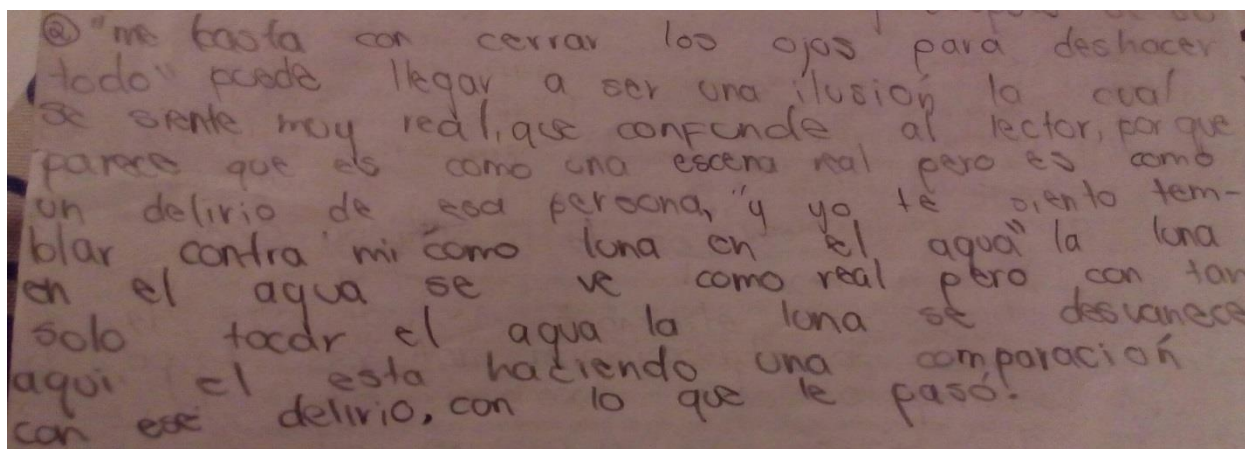 ② "me basta con cerrar los ojos para deshacer
todo" puede llegar a ser una ilusión la cual
se siente muy real, que confunde al lector, por que
parece que es como una escena real pero es como
un delirio de esa persona, "y yo te siento tem-
blar contra mi como luna en el agua" la luna
en el agua se ve como real pero con tan
solo tocar el agua la luna se desvanece
aqui el esta haciendo una comparación
con ese delirio, con lo que le pasó.